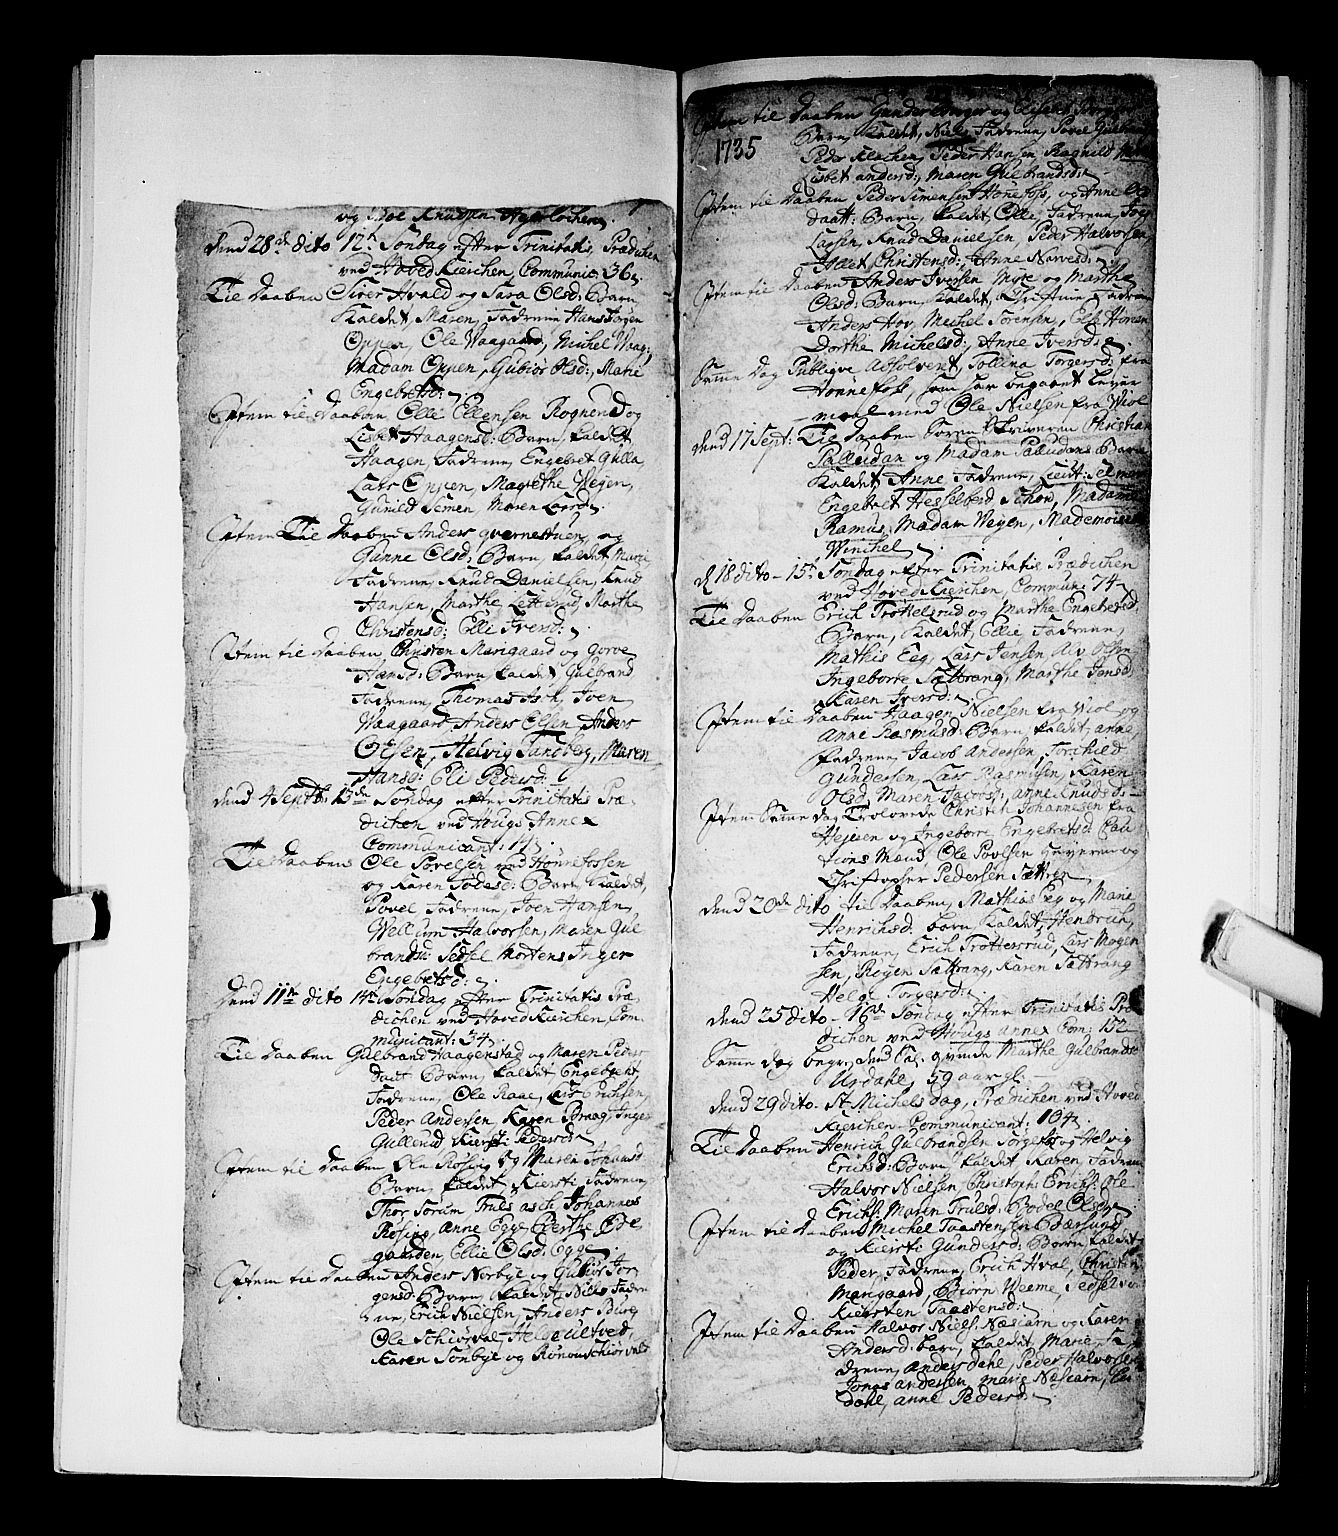 og Boe Knudsen
dend 28de dito 12te Söndag efter Trinitatis, Prædichen
ved Hoved Kierchen, Communic: 36
Til Daaben Siver Hvald og Sara Olsd: Barn
Kaldet Maren, Fadrene Hans Jörgen
Oppen, Ole Waagaard, Michel Waag:
Madam Oppen, Gubiör Olsd:, Marie
Engebretsd:
Jtem til Daaben Elli Ellensen Rognend og
Lisbet Haagensd: Barn, Kaldet
Haagen, Fadrene, Engebret Gulla,
Lars Oppen, Magrethe Wegen,
Gunild Semen, Maren Larsd:
Jtem Til Daaben Anders Qvernestuen, og
Gunne Olsd: Barn, Kaldet Marie
Fadrene, Knud Danielsen, Knud
Hansen, Marthe Letterud, Marthe
Christensd: Elli Jversd:
Jtem til Daaben Christen Marigaard og Gorve
Hansd: Barn, Kaldet Gulbrand
Fadrene, Thomas Asck, Joen
Waagaard, Anders Olsen, Anders
Olsen, Helvig Tandberg, Maren
Hansd: Eli Pedersd:
dend 4 Septb: 13de Söndag efter Trinitatis Præ-
dichen ved Hougs Annex
Communicant: 143
Til Daabens Ole Povelsen ved Hönnefossen
og Karen Todesd: Barn, Kaldet,
Povel, Fadrene, Joen Hansen,
Wellum Halvorsen, Maren Gul
brandsd: Sedsel Mortens Inger
Engebretsd:
Dend 11te dito 14te Söndag efter Trinitatis Præ-
dichen ved Hoved Kierchen, Com-
municant: 34
Til Daaben Gulbrand Haagenstad og Maren Peders
daat: Barn, Kaldet Engebret
Fadrene, Ole Raae, Lars Erichsen,
Peder Andersen, Karen Braag, Inger
Gullerud Kiersti Pedersd:
Jtem til Daaben Ole Rösing og Maren Johansd
Barn, Kaldet, Kiersti Fadrene,
Thor Sörum Truls Asch, Johannes
Rösing, Anne Egge, Berthe Öde
gaarden, Ellie Olsd: Egge
Jtem til Daaben Anders Norbye og Gubiör Jör-
gensd: Barn, Kaldet, Niels Fadre
ne, Erich Nielsen, Anders Burg
Ole Schiörval, Helge Ultved,
Karen Sönbye og Rönou Schiörvald
Jtem til Daaben Gunder Berger og Lisbet
1735 Barn, Kaldet, Niels, Fadrene, Povel
Peder Klochen, Peder Hansen Ragnild
Lisbet Andersd:, Maren Gulbrandsd:
Jtem til Daaben Peder Simensen Hönefoss, og Anne
daatt: Barn, Kaldet Elli, Fadrene,
Larsen, Knud Danielsen, Peder Halvorsen
Allet Christensd:, Anne Narvesd:
Jtem til Daaben Anders Jversen Mye og Marthe
Olsd: Barn, Kaldet, Christine Fadrene
Anders Hov, Michel Sörensen, Else Honen
Dorthe Michelsd:, Anne Jversd:
Samme Dag Publiqve Absolveret, Tollina Torgersd: fra
Hönnefoss, som har begaaet Leyer
maal med Ole Nielsen fra Wiol
dend 17 Sept: Til Daaben Soren Skriveren Christian
Palludan og Madam Palludans Barn
Kaldet Anne, Fadrene, Lieut:
Engebret Hesselberg Schou, Madame
Ramus, Madam Wegen, Mademoiselle
Winchel
d 18 dito - 15de Söndag efter Trinitatis Prædichen
ved Hoved Kierchen, Commun: 74
Til Daaben Erich Trottelsrud og Marthe Engebretsd:
Barn, Kaldet, Ellie Fadrene,
Mathis Eeg, Lars Jensen
Ingeborre Sættrang, Marthe Jensd:
Karen Jversd:
Jtem til Daaben Haagen Nielsen fra Wiol og
Anne Rasmusd: Barn, Kaldet, Anne,
Fadrene, Jacob Andersen, Torchild
Gundersen, Lars Rasmusen, Karen
Olsd: Maren Jacobs:, Anne Knudsd:
Jtem Samme dag Trolovede Christen Johannesen fra
Hejeien og Ingeborre Engebretsd: Cau
tions Mænd Ole Povlsen Heyeren og
Christopher Pedersen Sættren
dend 20de dito til Daaben, Mathias Eeg og Marie
Henrichsd: barn Kaldet Henrich,
Fadrene, Erich Trottersrud, Lars Mogen
sen, Rogen Sættrang, Karen Sættrang
Helge Torgersd:
Dend 25 dito - 16de Söndag efter Trinitatis Præ
dichen ved Hougs Annex Com: 152
Samme dag begr: dend Sal: qvinde Marthe Gulbrandsd
Ursdahl, 59 aar gl:
Dend 29 dito. St. Michels dag, Prædichen ved Hoved
Kierchen Communicant: 104
Til Daaben Henrich Gulbrandsen Torgerstad og Helvig
Erichsd: Barn, Kaldet Karen, Fadrene
Halvor Nielsen, Christoph: Erichs: Ole
Erichs: Maren Trulsd: Bodel Olsd:
Jtem til Daaben Michel Taastensen Bærsund
og Kiersti Gundersd: Barn Kaldet
Peder, Fadrene, Erich Aval, Christen
Marigaard, Biörn Weeme, Sedsel
Kiersten Taastensd:
Jtem til Daaben Halvor Niels: Næsiarn og Karen
Andersd: barn, Kaldet, Marie, Fa
drene, Anders dahl, Peder Halvorsen
Jonas Andersen, Marie Næsiarn,
Dahl, Anne Pedersd: